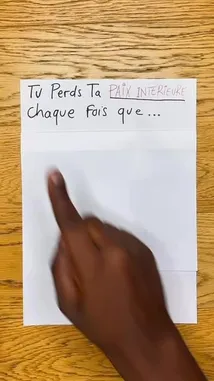 Tu Perds Ta PAIX INTERIEURE
Chaque Fois que...